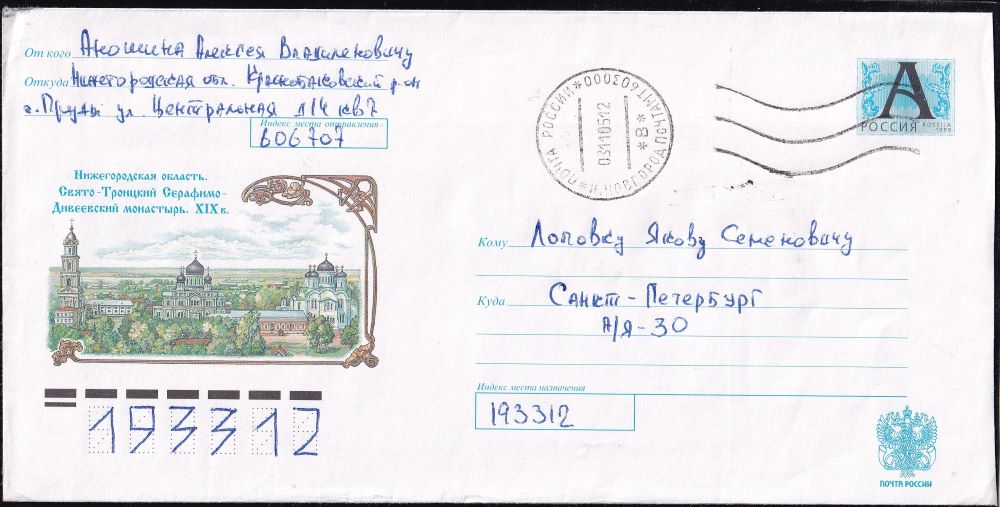 От кого Аношина Алексея Владиленовичу
Откуда Нижегородская обл. Краснобаковский р-он
г. Пруды ул. Центральная д14 кв7
Индекс места отправления:
606707
Нижегородская область.
Свято-Троицкий Серафимо-
Дивеевский монастырь. XIX в.
ПОЧТА РОССИИ * Н.НОВГОРОД ПОЧТАМТ 603000
031105 12
* В *
А
РОССИЯ ROSSIJA
1999
Кому Лоповку Якову Семеновичу
Куда Санкт-Петербург
А/Я-30
Индекс места назначения
193312
193312
ПОЧТА РОССИИ